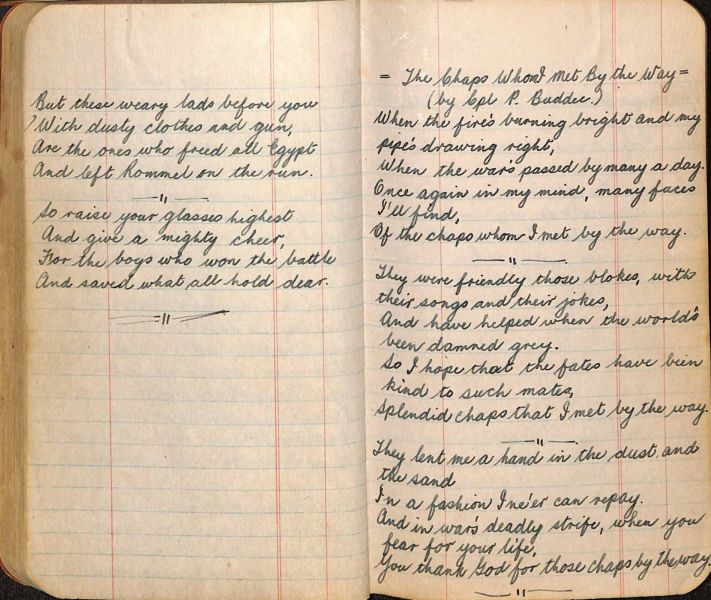 But these weary lads before you
With dusty clothes and gun,
Are the ones who freed all Egypt
And left Rommel on the run.
So raise your glasses highest
And give a mighty cheer,
For the boys who won the battle
And saved what all hold dear.
= The Chaps Whom I Met By the Way =
(by Cpl P. Buddee.)
When the fire's burning bright and my
pipe's drawing right,
When the war's passed by many a day.
Once again in my mind, many faces
I'll find,
Of the chaps whom I met by the way.
They were friendly those blokes, with
their songs and their jokes,
And have helped when the world's
been damned grey.
So I hope that the fates have been
kind to such mates,
Splendid chaps that I met by the way.
They lent me a hand in the dust and
the sand
In a fashion I ne'er can repay.
And in war's deadly strife, when you
fear for your life,
You thank God for those chaps by the way.